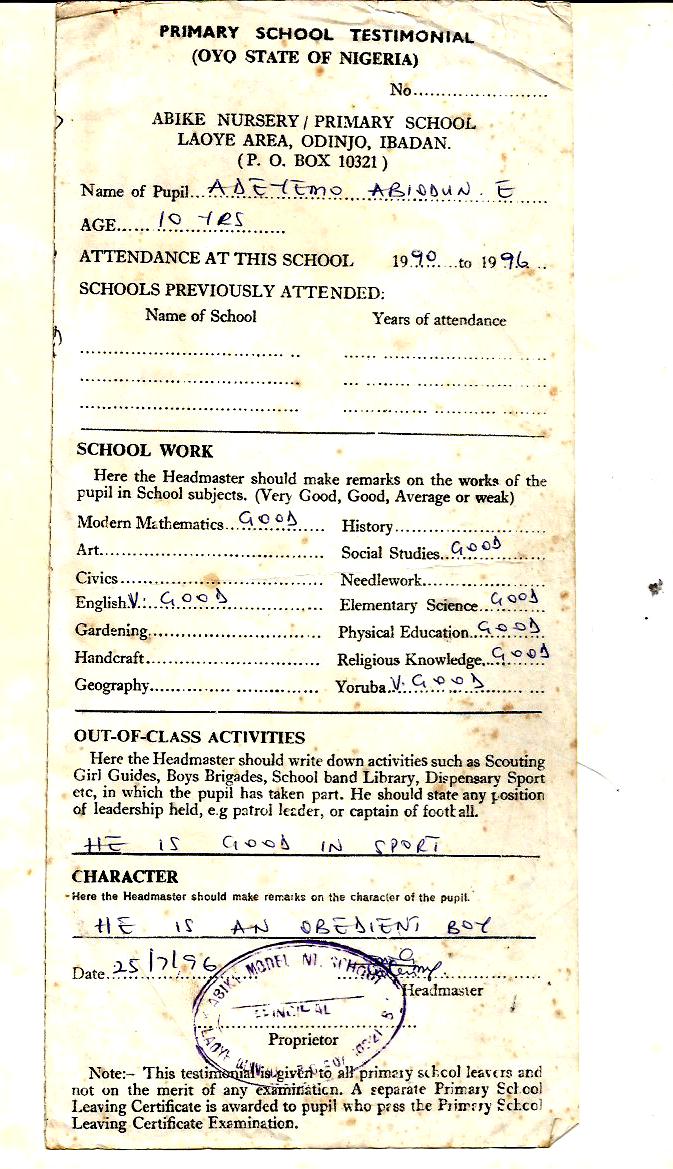 PRIMARY SCHOOL TESTIMONIAL
(OYO STATE OF NIGERIA)
No..........................
ABIKE NURSERY / PRIMARY SCHOOL
LAOYE AREA, ODINJO, IBADAN.
( P. O. BOX 10321 )
Name of Pupil... ADEYEMO ABIODUN. E
AGE..... 10 YRS ........
ATTENDANCE AT THIS SCHOOL 1990 ....to 1996 ..
SCHOOLS PREVIOUSLY ATTENDED:
Name of School Years of attendance
SCHOOL WORK
Here the Headmaster should make remarks on the works of the
pupil in School subjects. (Very Good, Good, Average or weak)
Modern Mathematics.. GOOD ..... History..........................
Art.......................................... Social Studies.. GOOD ....
Civics...................................... Needlework........................
English V. GOOD .............. Elementary Science.. GOOD
Gardening................................ Physical Education.. GOOD
Handcraft................................ Religious Knowledge.. GOOD
Geography............................... Yoruba V. GOOD ........
OUT-OF-CLASS ACTIVITIES
Here the Headmaster should write down activities such as Scouting
Girl Guides, Boys Brigades, School band Library, Dispensary Sport
etc, in which the pupil has taken part. He should state any position
of leadership held, e.g patrol leader, or captain of football.
HE IS GOOD IN SPORT
CHARACTER
Here the Headmaster should make remarks on the character of the pupil.
HE IS AN OBEDIENT BOY
Date 25/7/96
Headmaster
ABIKE MODEL N. SCHOOL
Proprietor
Note:- This testimonial is given to all primary school leavers and
not on the merit of any examination. A separate Primary School
Leaving Certificate is awarded to pupil who pass the Primary School
Leaving Certificate Examination.